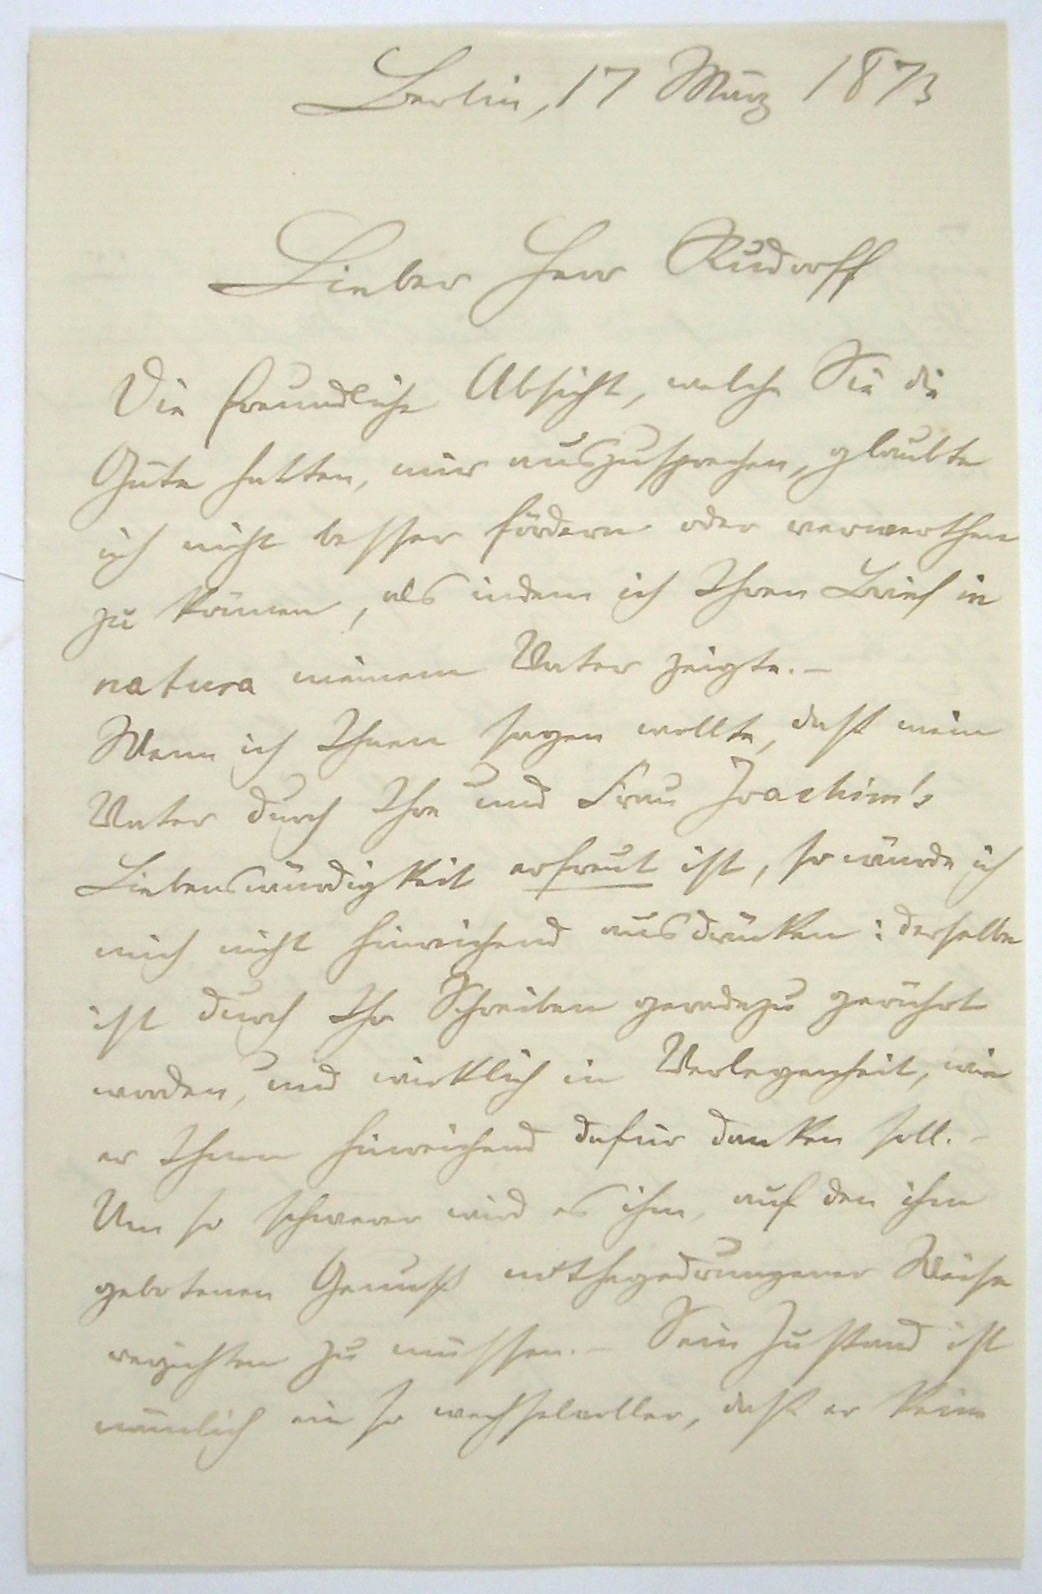 Berlin, 17 März 1873
Lieber Herr Rudorff
Die freundliche Absicht, welche Sie die
Güte hatten, mir auszusprechen, glaubte
ich nicht besser fördern oder verwerthen
zu können, als indem ich Ihren Brief in
natura meinem Vater zeigte. —
Wenn ich Ihnen sagen wollte, daß mein
Vater durch Ihre und Frau Joachim's
Liebenswürdigkeit erfreut ist, so würde ich
mich nicht hinreichend ausdrücken: derselbe
ist durch Ihr Schreiben geradezu gerührt
worden, und wirklich in Verlegenheit, wie
er Ihnen hinreichend dafür danken soll. —
Um so schwerer wird es ihm, auf den ihm
gebotenen Genuß nothgedrungener Weise
verzichten zu müssen. — Sein Zustand ist
nämlich ein so wechselvoller, daß er keine